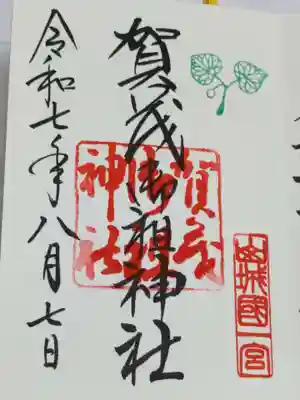 山城國一宮
賀茂御祖神社
賀茂
神社
令和七年八月七日